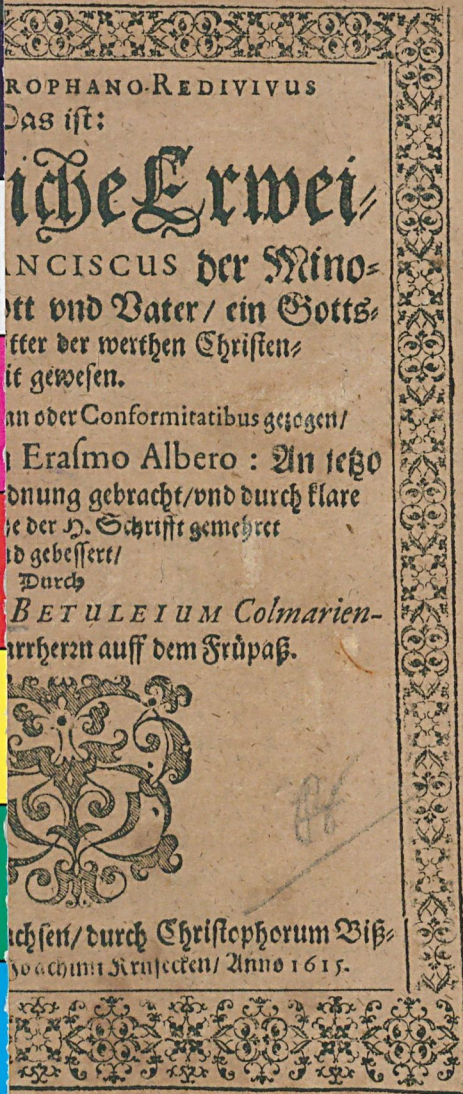 ROPHANO-REDIVIVUS
Das ist:
iche Erwei⸗
NCISCUS der Mino⸗
tt vnd Vater/ ein Gotts⸗
tter der werthen Christen⸗
it gewesen.
an oder Conformitatibus gezogen/
Erasmo Albero: An jetzo
dnung gebracht/vnd durch klare
der H. Schrifft gemehret
d gebessert/
Durch
BETULEIUM Colmarien-
arrherrn auff dem Früpaß.
achsen/ durch Christophorum Biß⸗
Joachimi Krusecken/ Anno 1615.